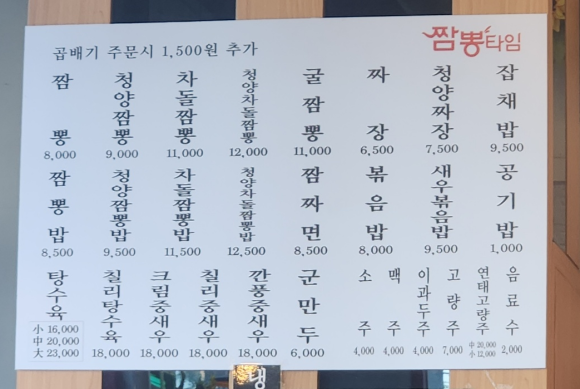 짬뽕타임
곱배기 주문시 1,500원 추가
짬뽕 8,000
청양짬뽕 9,000
차돌짬뽕 11,000
청양차돌짬뽕 12,000
굴짬뽕 11,000
짜장 6,500
청양짜장 7,500
잡채밥 9,500
짬뽕밥 8,500
청양짬뽕밥 9,500
차돌짬뽕밥 11,500
청양차돌짬뽕밥 12,500
짬짜면 8,500
볶음밥 8,000
새우볶음밥 9,500
공기밥 1,000
탕수육
小 16,000
中 20,000
大 23,000
칠리탕수육 18,000
크림중새우 18,000
칠리중새우 18,000
깐풍중새우 18,000
군만두 6,000
소주 4,000
맥주 4,000
이과두주 4,000
고량주 7,000
연태고량주
中 20,000
小 12,000
음료수 2,000
냉